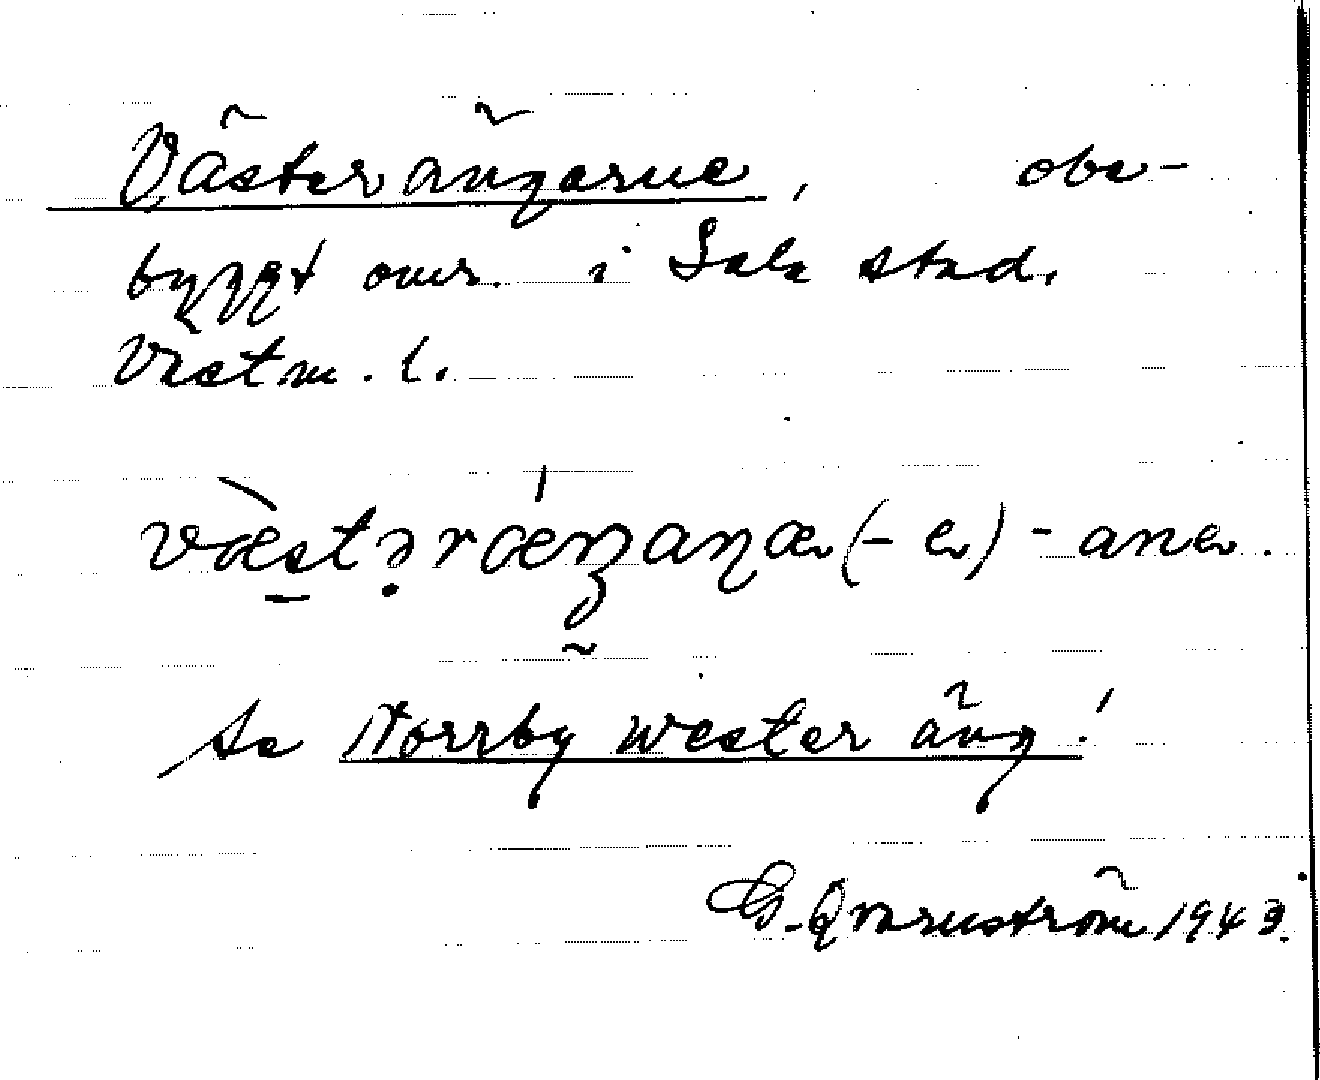 Västerängarne, obe-
byggt omr. i Sala stad,
Västm. l.
væ̀stərǽŋaɳæ(-ɐ) -anɐ.
Se Norrby wester äng!
G. Qvarnström 1943.